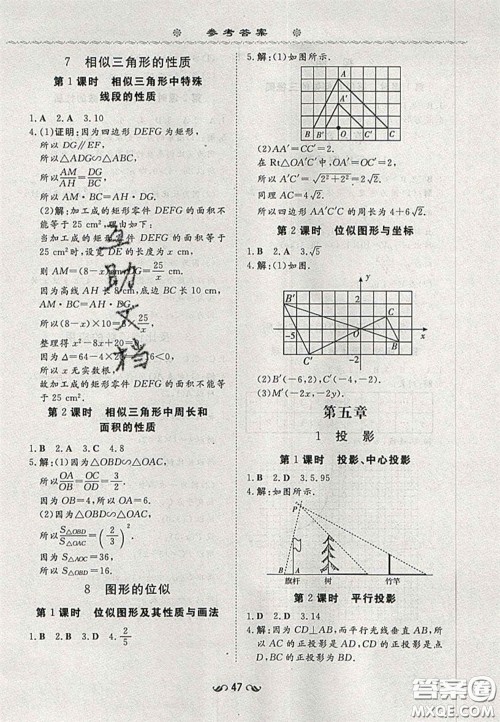 参考答案
7 相似三角形的性质
第1课时 相似三角形中特殊
线段的性质
1.A 2.A 3.10
4.(1)证明:因为四边形 DEFG 为矩形,
所以 DG∥EF,
所以△ADG∽△ABC,
所以 AM/AH=DG/BC,
所以 AM·BC=AH·DG.
(2)解:加工成的矩形零件 DEFG 的面积不
能等于 25 cm²,理由如下:
当加工成的矩形零件 DEFG 的面积等于
25 cm² 时,设宽 DE 的长度为 x cm,
则 AM=(8-x)cm,DG=25/x cm,
因为高线 AH 长 8 cm,底边 BC 长 10 cm,
AM·BC=AH·DG,
所以(8-x)×10=8×25/x,
整理得 x²-8x+20=0,
因为 Δ=64-4×20=-16<0,
所以 x 无实数根,
故加工成的矩形零件 DEFG 的面积不能等
于 25 cm².
第2课时 相似三角形中周长和
面积的性质
1.B 2.A 3.D 4.A
5.解:(1)因为△OBD∽△OAC,
所以 OB/OA=OD/OC=2/3.
因为 OB=4,所以 OA=6.
(2)因为△OBD∽△OAC,
所以 S△OBD/S△OAC=(2/3)².
因为 S△OAC=36,
所以 S△OBD=16.
8 图形的位似
第1课时 位似图形及其性质与画法
1.D 2.B 3.C 4.2/5
5.解:(1)如图所示.
A
A'
B B' O C' C
(2)AA'=CC'=2.
在 Rt△OA'C'中,OA'=OC'=2,
得 A'C'=√(2²+2²)=2√2.
同理 AC=4√2.
所以四边形 AA'C'C 的周长为 4+6√2.
第2课时 位似图形与坐标
1.D 2.A 3.√5
4.解:(1)如图所示.
y
B'
2
C
-5 O x
-2 B
C'
(2)B'(-6,2),C'(-4,-2).
(3)M'(-2x,-2y).
第五章
1 投影
第1课时 投影、中心投影
1.D 2.D 3.5.95
4.解:如图所示.
P
B A
旗杆 树 竹竿
第2课时 平行投影
1.A 2.A 3.14
4.解:因为 CD⊥AB,而平行光线垂直于 AB,
所以 AC 的正投影是 AD,CD 的正投影是点
D,BC 的正投影是 BD.
47
互助文档
答案圈
MXQE.COM